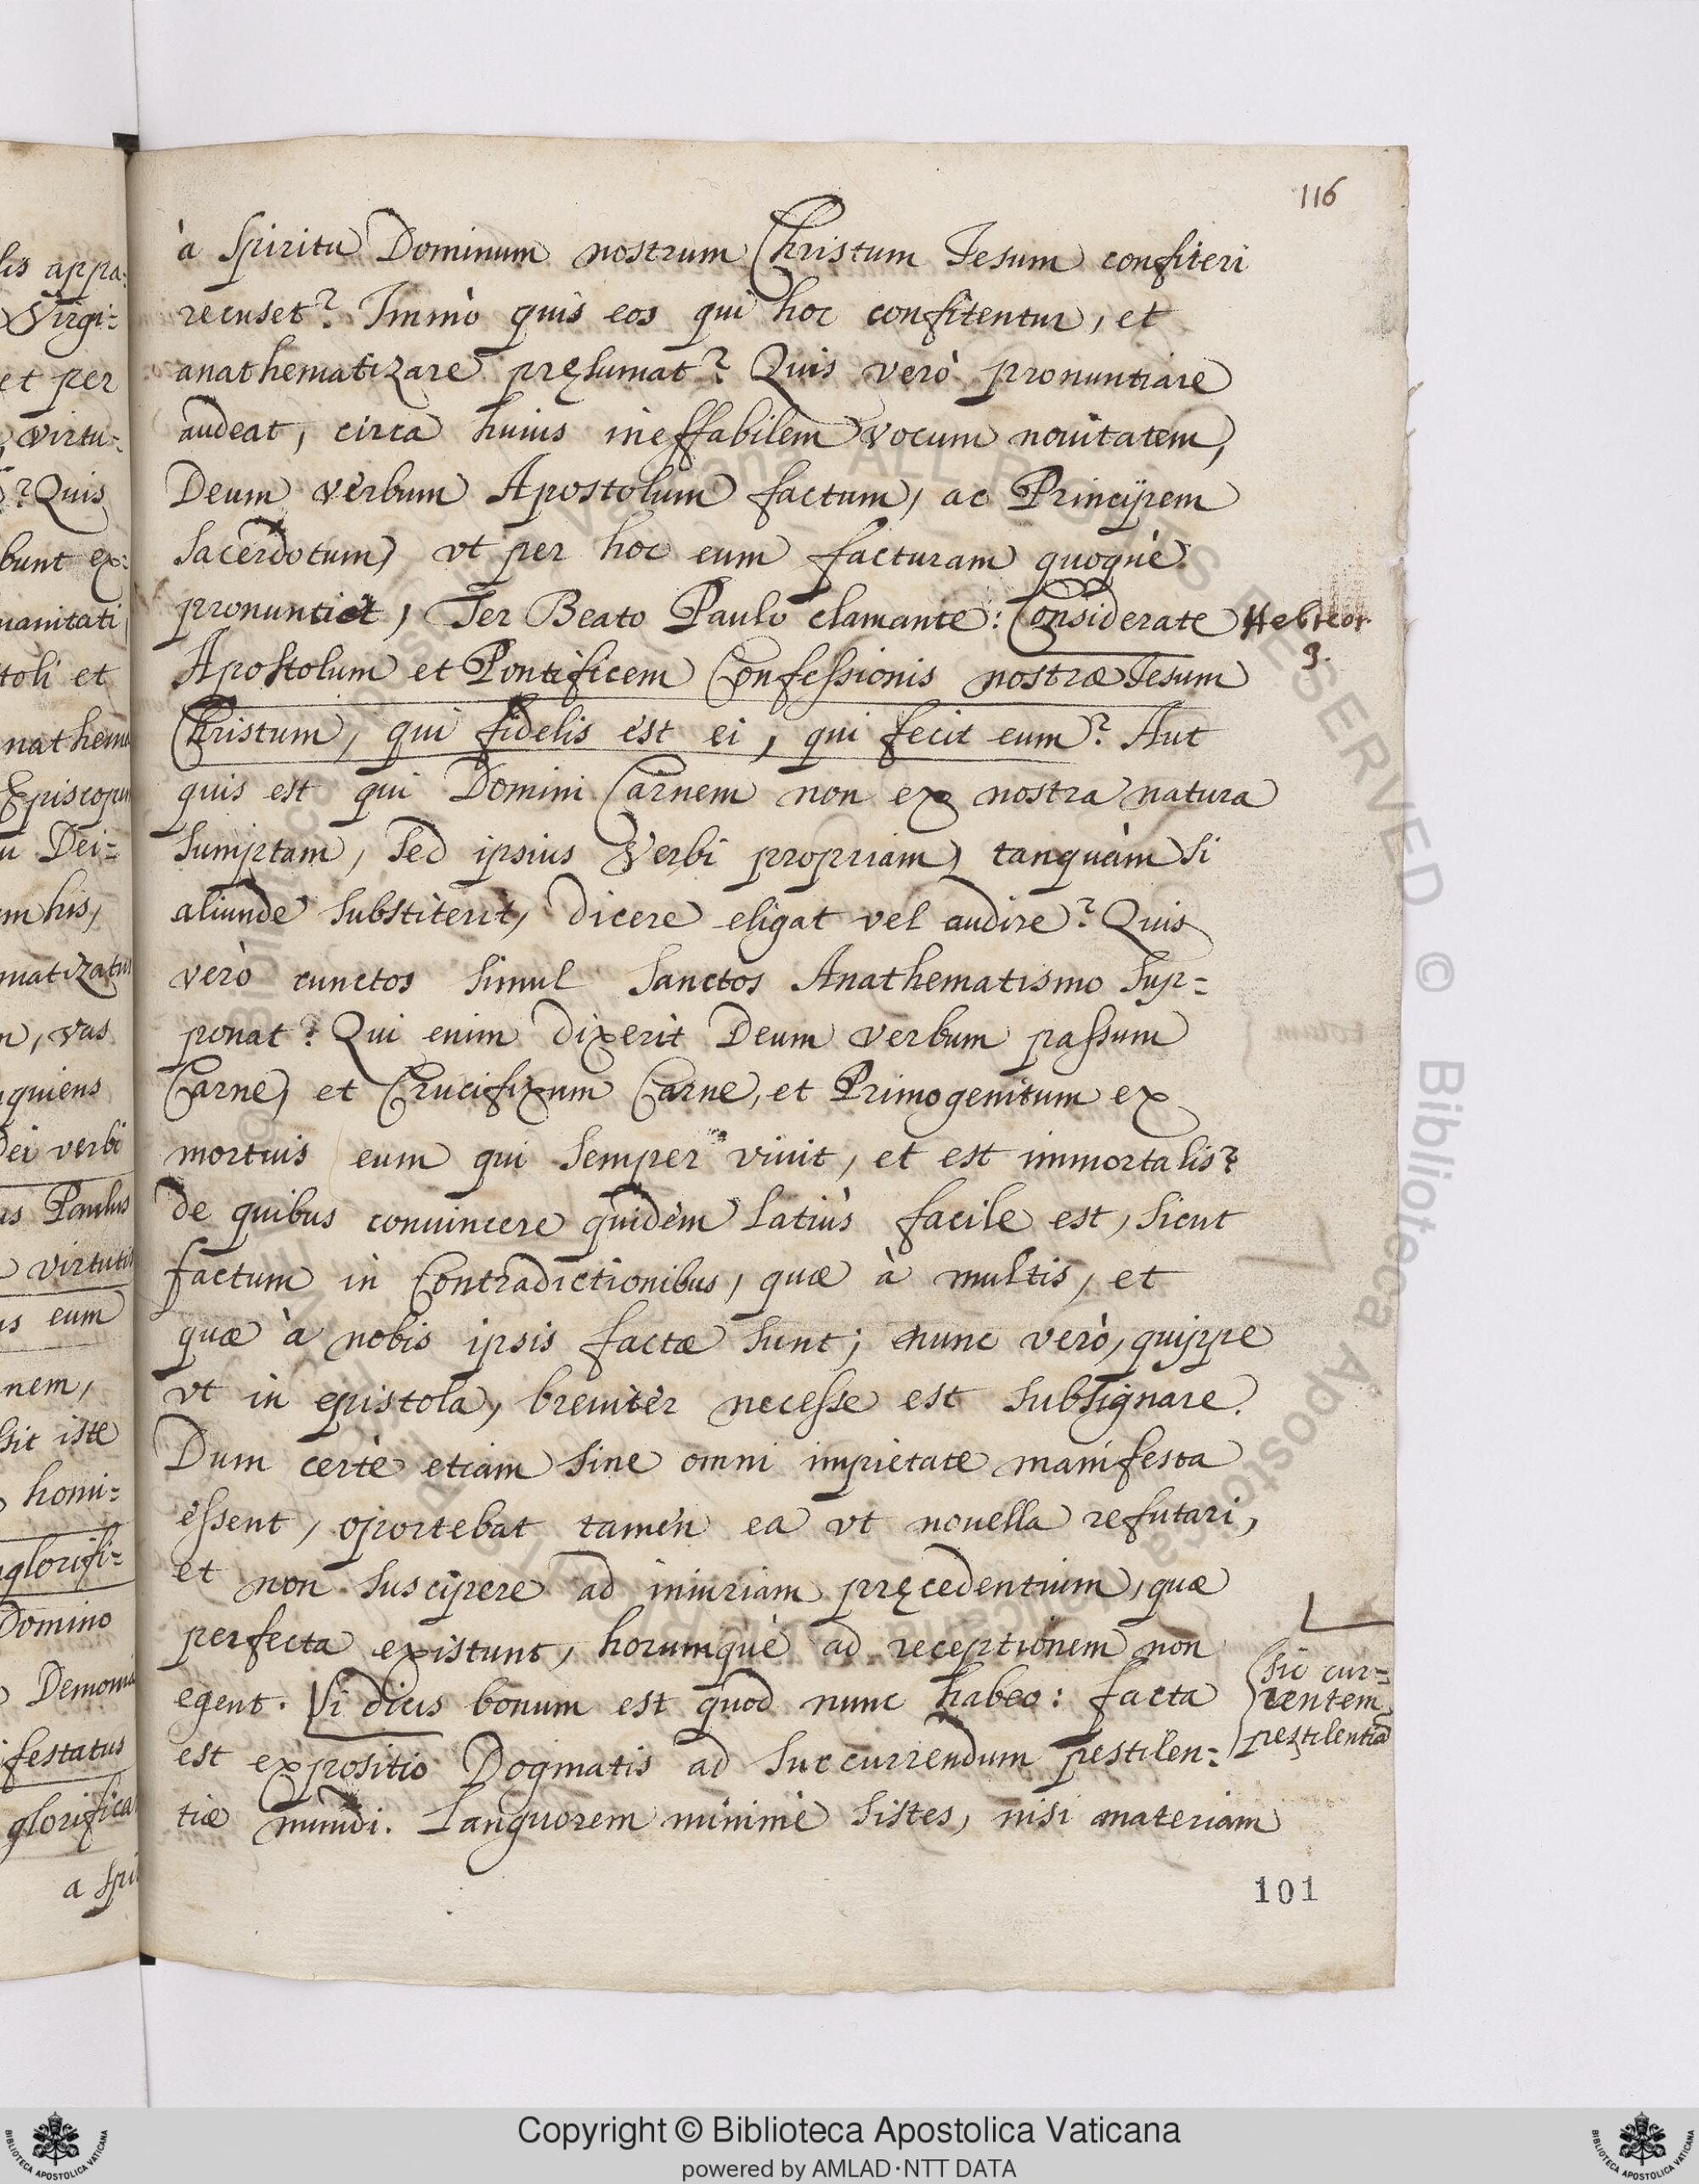 116
à Spiritu Dominum nostrum Christum Iesum confiteri
recuset? Immò quis eos qui hoc confitentur, et
anathematizare pręsumat? Quis verò pronuntiare
audeat, circa huius ineffabilem vocum nouitatem,
Deum verbum Apostolum factum, ac Principem
Sacerdotum, vt per hoc eum facturam quoquè
pronuntiet, Ter Beato Paulo clamante: Considerate
Hebreor.
3.
Apostolum et Pontificem Confessionis nostræ Iesum
Christum, qui fidelis est ei, qui fecit eum? Aut
quis est qui Domini Carnem non ex nostra natura
sumptam, sed ipsius Verbi propriam, tanquàm si
aliunde substiterit, dicere eligat vel audire? Quis
verò cunctos simul Sanctos Anathematismo sup=
ponat? Qui enim dixerit Deum verbum passum
Carne, et Crucifixum Carne, et Primogenitum ex
mortuis eum qui semper viuit, et est immortalis?
de quibus conuincere quidèm latiùs facile est, sicut
factum in Contradictionibus, quæ à multis, et
quæ à nobis ipsis factæ sunt; nunc verò, quippe
vt in epistola, breuitèr necesse est subsignare.
Dum certè etiam sine omni impietate manifesta
essent, oportebat tamèn ea vt nouella refutari,
et non suscipere ad iniuriam pręcedentium, quæ
perfecta existunt, horumquè ad receptionem non
egent. Si dicis bonum est quod nunc habeo: facta
est expositio Dogmatis ad succurrendum pestilen=
tiæ mundi. Languorem minimè sistes, nisi materiam
sic cur=
rentem
pestilentiã
101
lis appa=
Virgi=
et per
virtu=
? Quis
bunt ex=
manitati
toli et
nathema
Episcopum
u Dei=
m his,
matizatus
n, vas
quiens
Dei verbi
us Paulus
virtutis
us eum
nem,
sit iste
homi=
glorifi=
Domino
Demonia
festatus
glorifica
a Spi
Copyright © Biblioteca Apostolica Vaticana
powered by AMLAD·NTT DATA